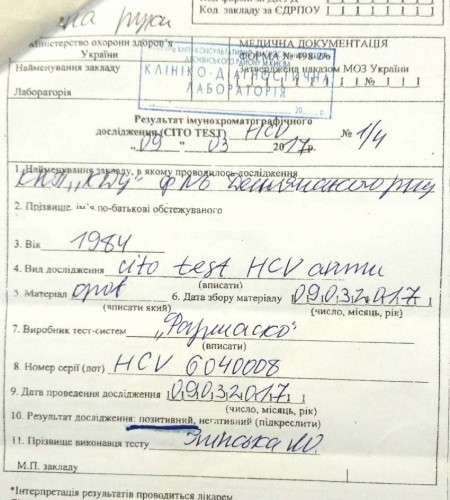 Код закладу за ЄДРПОУ
Міністерство охорони здоров'я
України
Найменування закладу
Лабораторія
МЕДИЧНА ДОКУМЕНТАЦІЯ
ФОРМА № 498-2/о
Затверджена наказом МОЗ України
№
КЛІНІКО-ДІАГНОСТИЧНА
ЛАБОРАТОРІЯ
Результат імунохроматографічного
дослідження (CITO TEST) HCV № 1/4
„09" 03 2017р.
1. Найменування закладу, в якому проводилось дослідження
2. Прізвище ім'я по-батькові обстежуваного
3. Вік 1984
4. Вид дослідження cito test HCV анти
(вписати)
5. Матеріал кров 6. Дата збору матеріалу 09032017
(вписати який) (число, місяць, рік)
7. Виробник тест-систем „Фармаско"
(вписати)
8. Номер серії (лот) HCV 6040008
9. Дата проведення дослідження 09032017
(число, місяць, рік)
10. Результат дослідження: позитивний, негативний (підкреслити)
11. Прізвище виконавця тесту
М.П. закладу
*Інтерпретація результатів проводиться лікарем